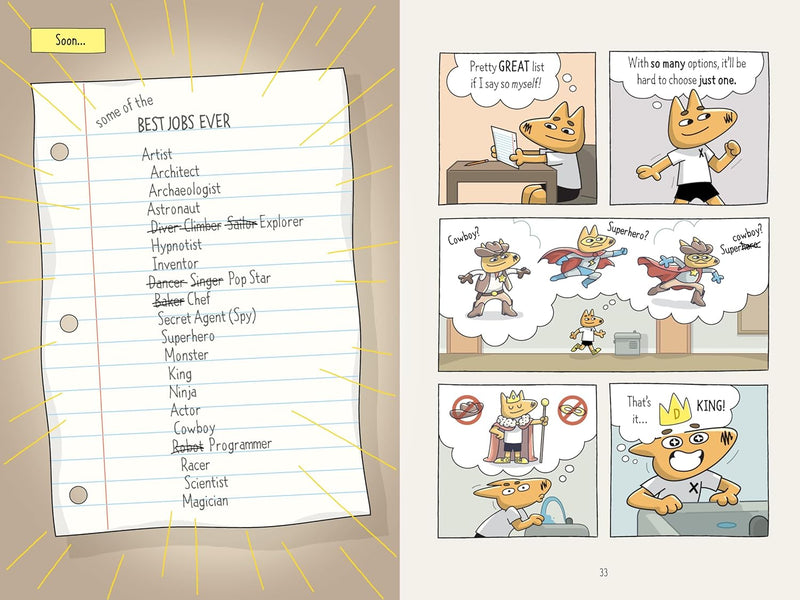 Soon...
some of the
BEST JOBS EVER
Artist
Architect
Archaeologist
Astronaut
Diver Climber Sailor Explorer
Hypnotist
Inventor
Dancer Singer Pop Star
Baker Chef
Secret Agent (Spy)
Superhero
Monster
King
Ninja
Actor
Cowboy
Robot Programmer
Racer
Scientist
Magician
Pretty GREAT list
if I say so myself!
With so many options, it'll be
hard to choose just one.
X
Cowboy?
Superhero?
cowboy?
Superhero.
That's
it...
D
KING!
X
33